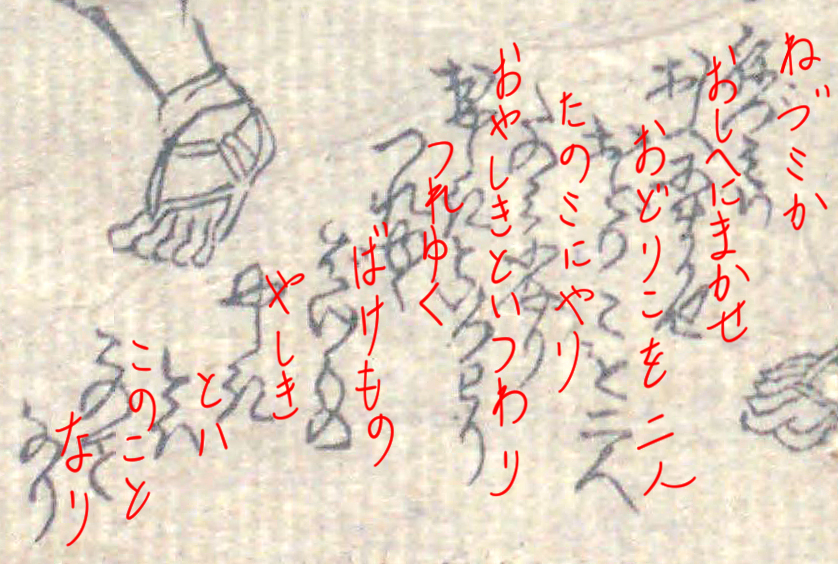 ねづミか
おしへにまかせ
おどりこを二人
たのミにやり
おやしきといつわり
つれゆく
ばけもの
やしき
とハ
このこと
なり